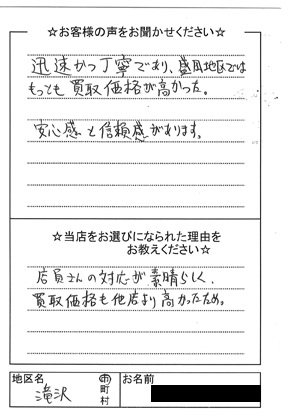 ☆お客様の声をお聞かせください☆
迅速かつ丁寧であり、盛岡地区では
もっとも買取価格が高かった。
安心感と信頼感があります。
☆当店をお選びになられた理由を
お教えください☆
店員さんの対応が素晴らしく、
買取価格も他店より高かったため。
地区名 滝沢 市町村 お名前